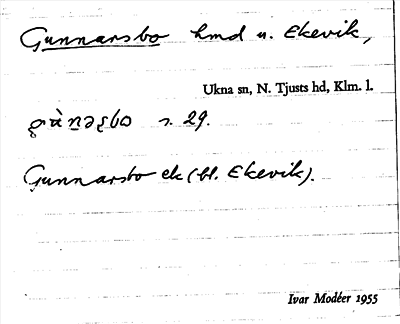 Gunnarsbo hmd u. Ekevik,
Ukna sn, N. Tjusts hd, Klm. l.
s. 29.
Gunnarsbo ek (bl. Ekevik).
Ivar Modéer 1955